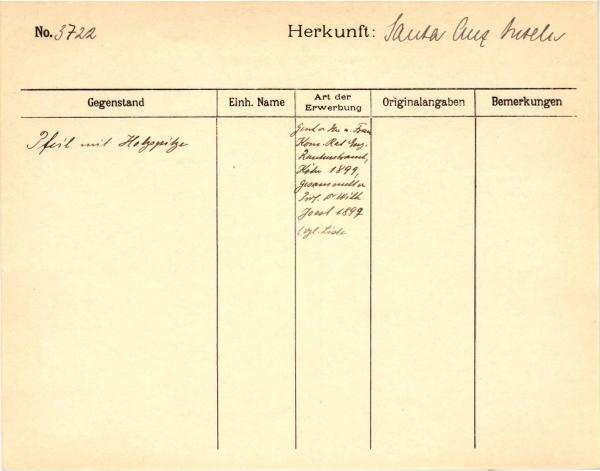 No. 3722
Herkunft: Santa Cruz Inseln
Gegenstand
Einh. Name
Art der
Erwerbung
Originalangaben
Bemerkungen
Pfeil mit Holzspitze
u. Frau
Kom. Rat Eug.
Rautenstrauch,
Köln 1899,
gesammelt v.
Prof. Dr Wilh.
Joest 1897
(vgl. Liste